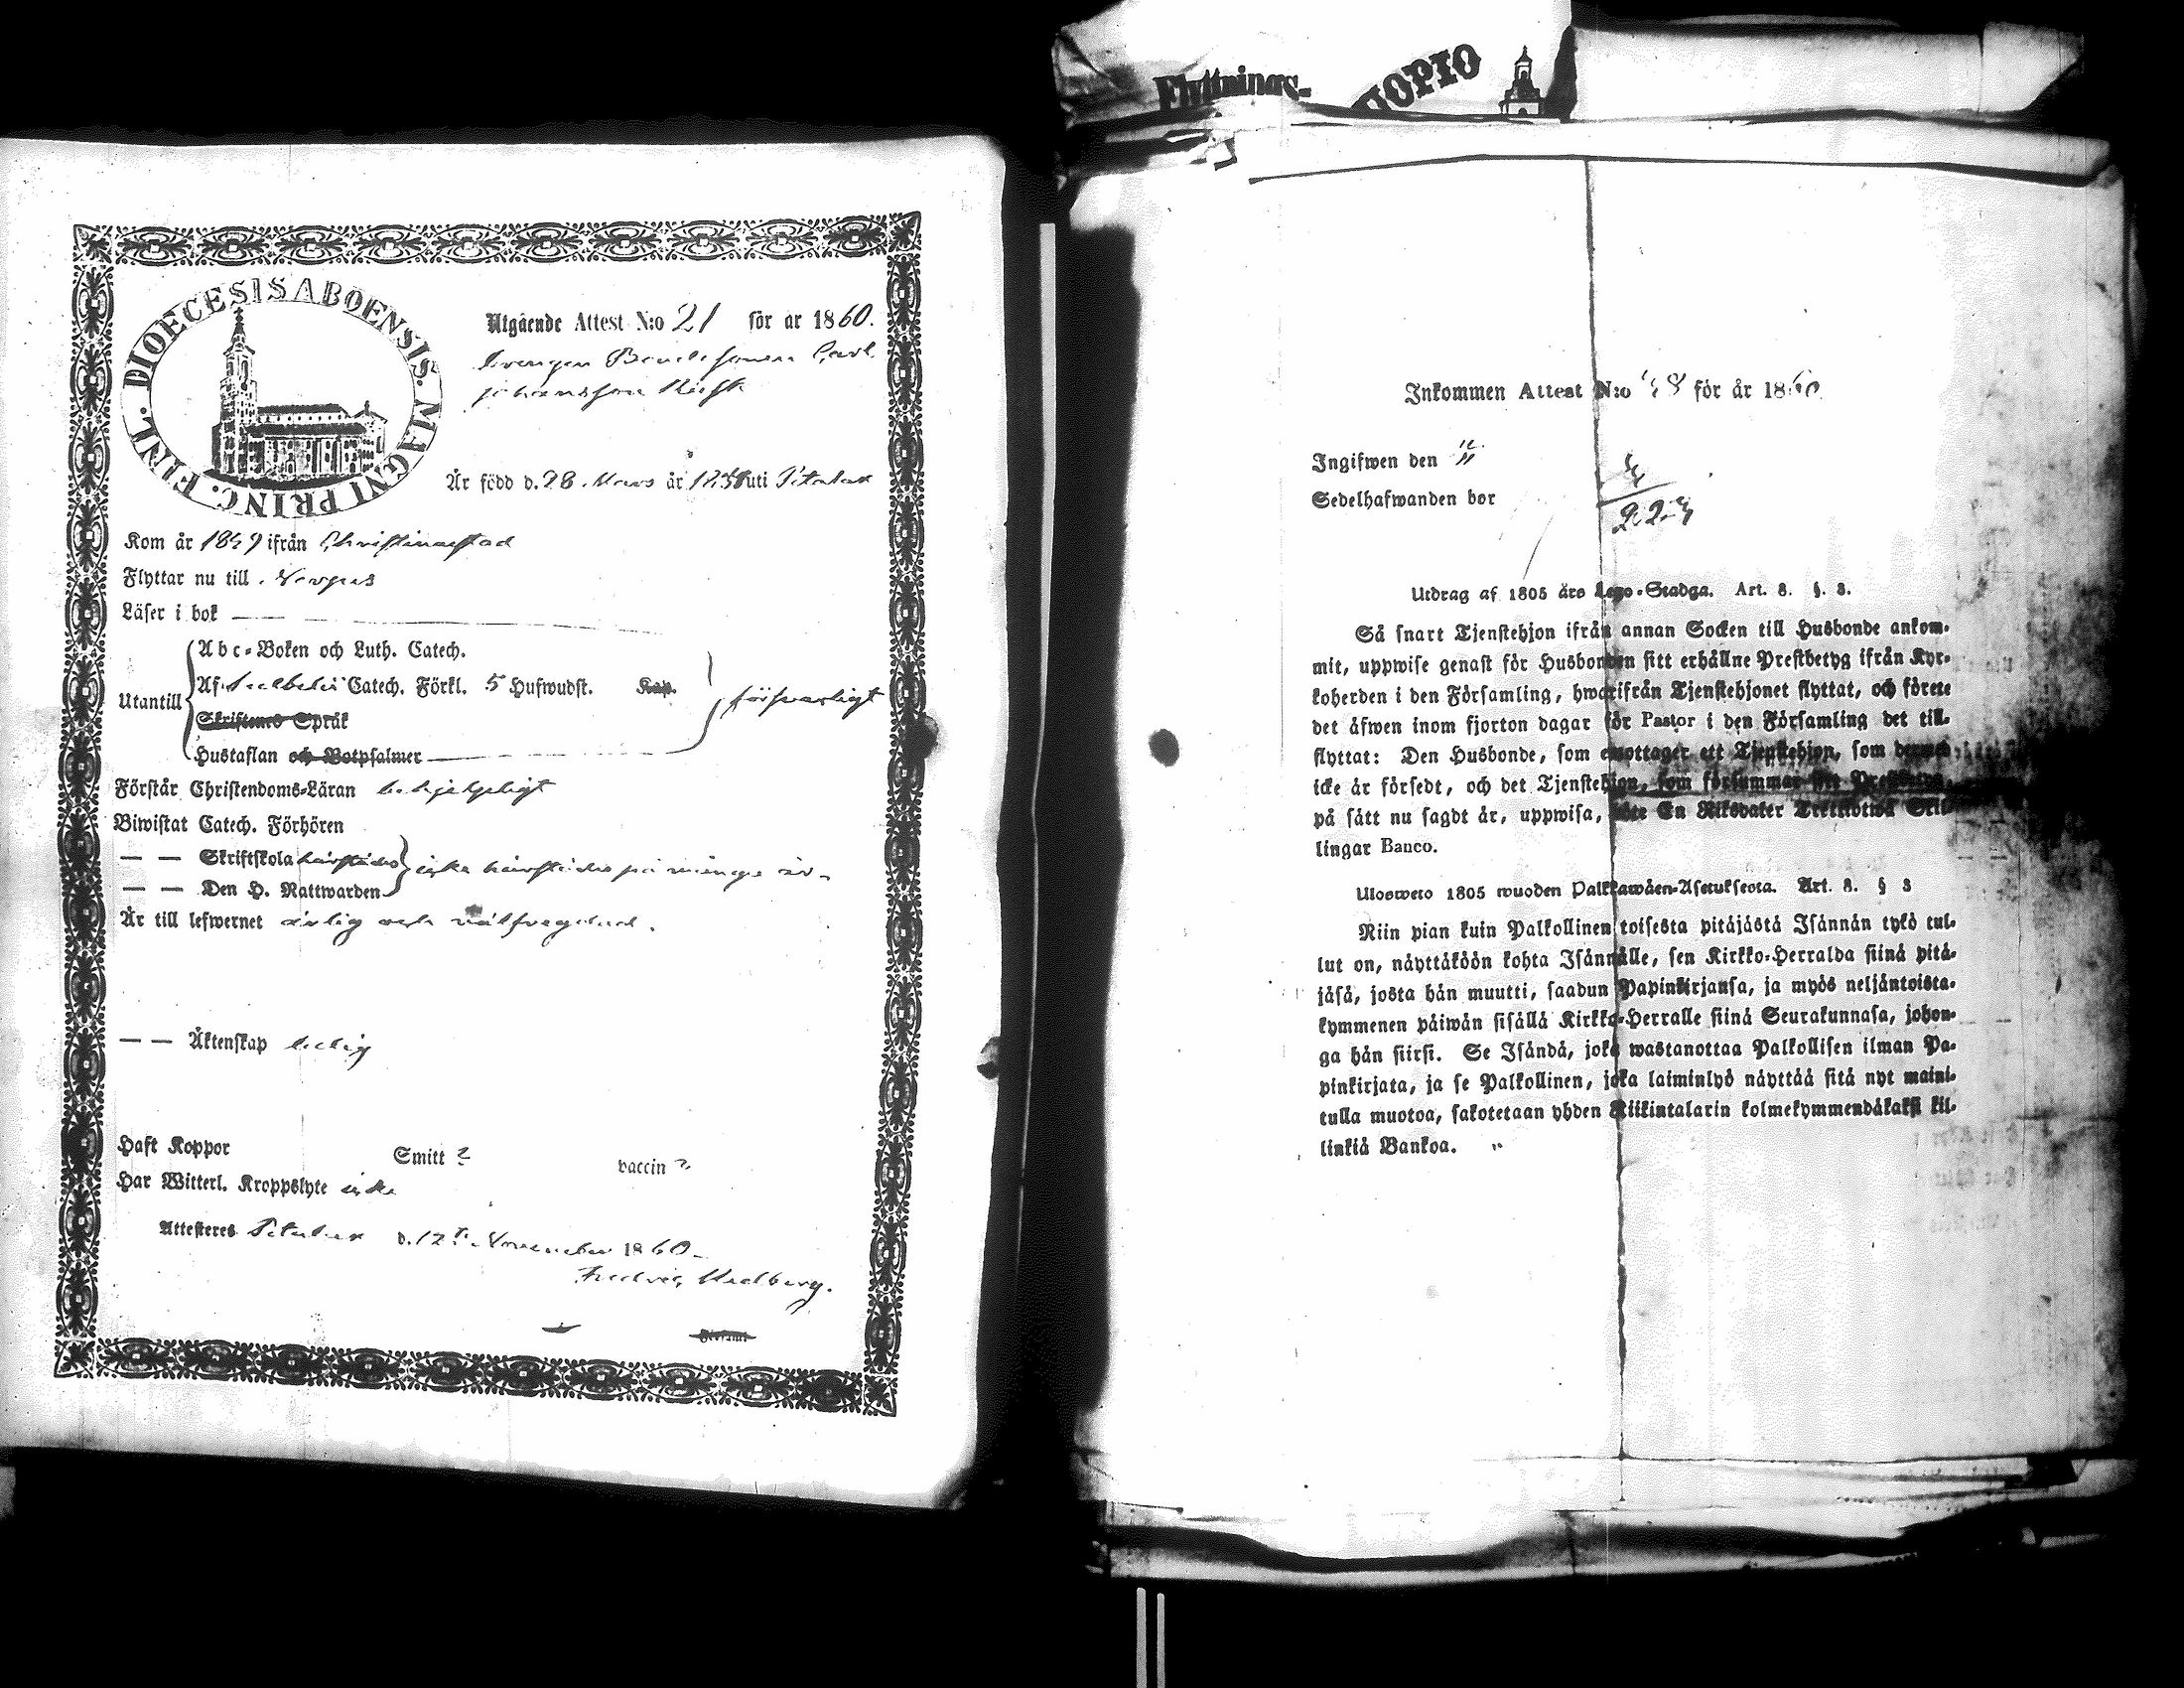 DIOECESIS ABOENSIS. MAGNI PRINC. FINL.
Utgående Attest N:o 21 för år 1860.
Drengen Bondesonen Carl
Johansson
Är född d. 28 Mars år uti Pitalax
Kom år ifrån Christinestad
Flyttar nu till Nerpes
Läser i bok
Abc-Boken och Luth. Catech.
Utantill
Af Svebelii Catech. Förkl. 5 Hufwudst. Kap.
försvarligt
Skriftenes Språk
Hustaflan och Botpsalmer
Förstår Christendoms-Läran
Biwistat Catech. Förhören
— — Skriftskola härstädes icke härstädes på många år
— — Den H. Nattwarden
Är till lefwernet ärlig och välfregdad.
— — Äktenskap ledig
Haft Koppor Smitt ? vaccin ?
Har Witterl. Kroppslyte icke
Attesteres Pitalax d. 12te November 1860
Hedberg.
Flyttnings-
UOPIO
Inkommen Attest N:o för år 1860
Ingifwen den
Sedelhafwanden bor
223
Utdrag af 1805 års Lego-Stadga. Art. 8. §. 3.
Så snart Tjenstehjon ifrån annan Socken till Husbonde ankom-
mit, uppwise genast för Husbonden sitt erhållne Prestbetyg ifrån Kyr-
koherden i den Församling, hwarifrån Tjenstehjonet flyttat, och förete
det äfwen inom fjorton dagar för Pastor i den Församling det till-
flyttat: Den Husbonde, som emottager ett Tjenstehjon, som dermed
icke är försedt, och det Tjenstehjon, som försummar sitt Prestbetyg,
på sätt nu sagdt är, uppwisa, böte En Riksdaler Trettiotwå Skil-
lingar Banco.
Ulosweto 1805 wuoden Palkkawäen-Asetuksesta. Art. 8. § 3
Niin pian kuin Palkollinen toisesta pitäjästä Isännän tykö tul-
lut on, näyttäköön kohta Isännälle, sen Kirkko-Herralda siinä pitä-
jäsä, josta hän muutti, saadun Papinkirjansa, ja myös neljäntoista-
kymmenen päiwän sisällä Kirkko-Herralle siinä Seurakunnasa, johon-
ga hän siirsi. Se Isändä, joka wastanottaa Palkollisen ilman Pa-
pinkirjata, ja se Palkollinen, joka laiminlyö näyttää sitä nyt maini-
tulla muotoa, sakotetaan yhden Riikintalarin kolmekymmendäkaksi kil-
linkiä Bankoa.